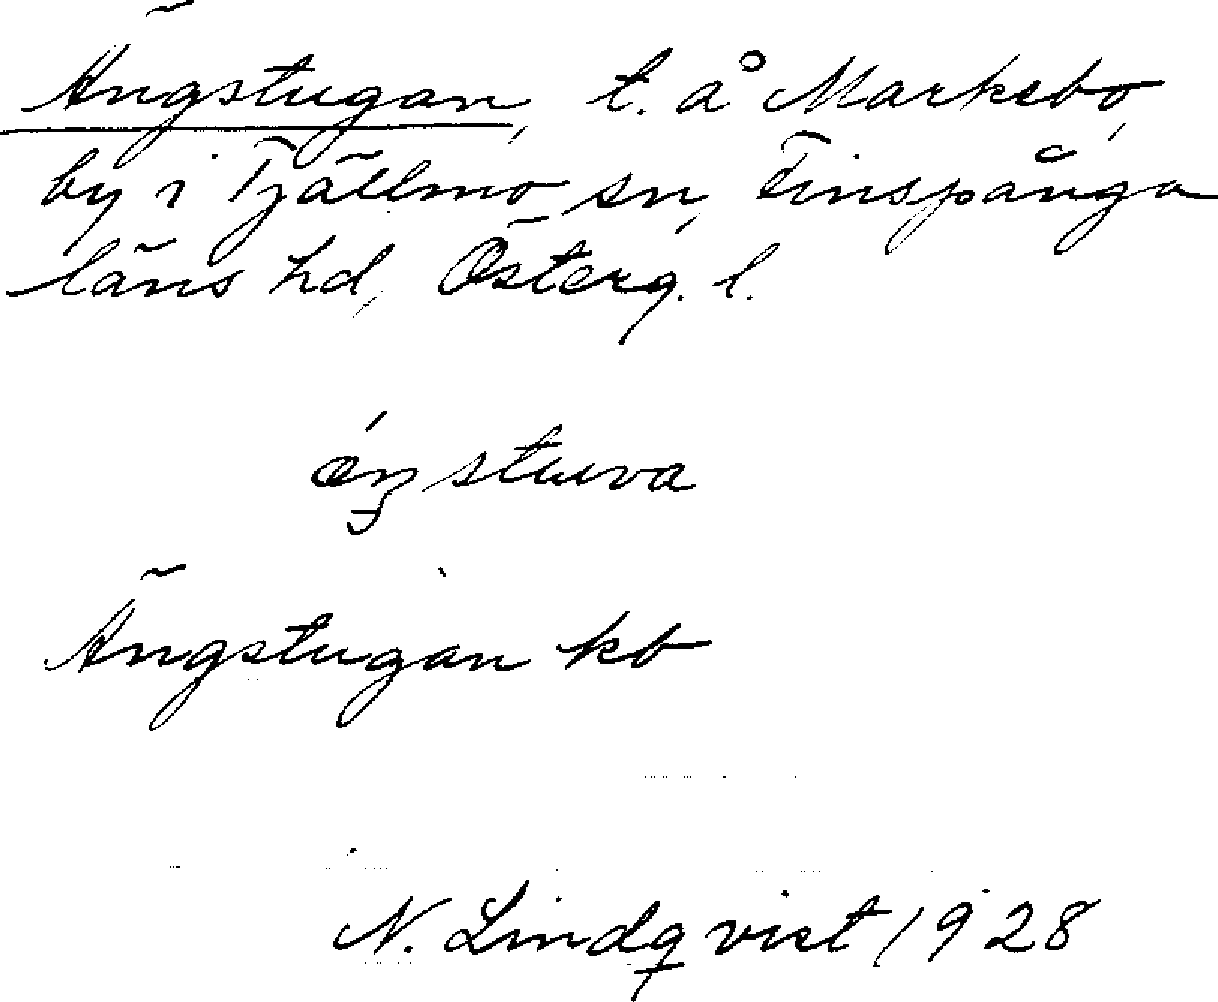 Ängstugan, t. å Marksbo,
by i Tjällmo sn, Finspånga
läns hd, Österg. l.
ǽŋstuva
Ängstugan kb
N. Lindqvist 1928